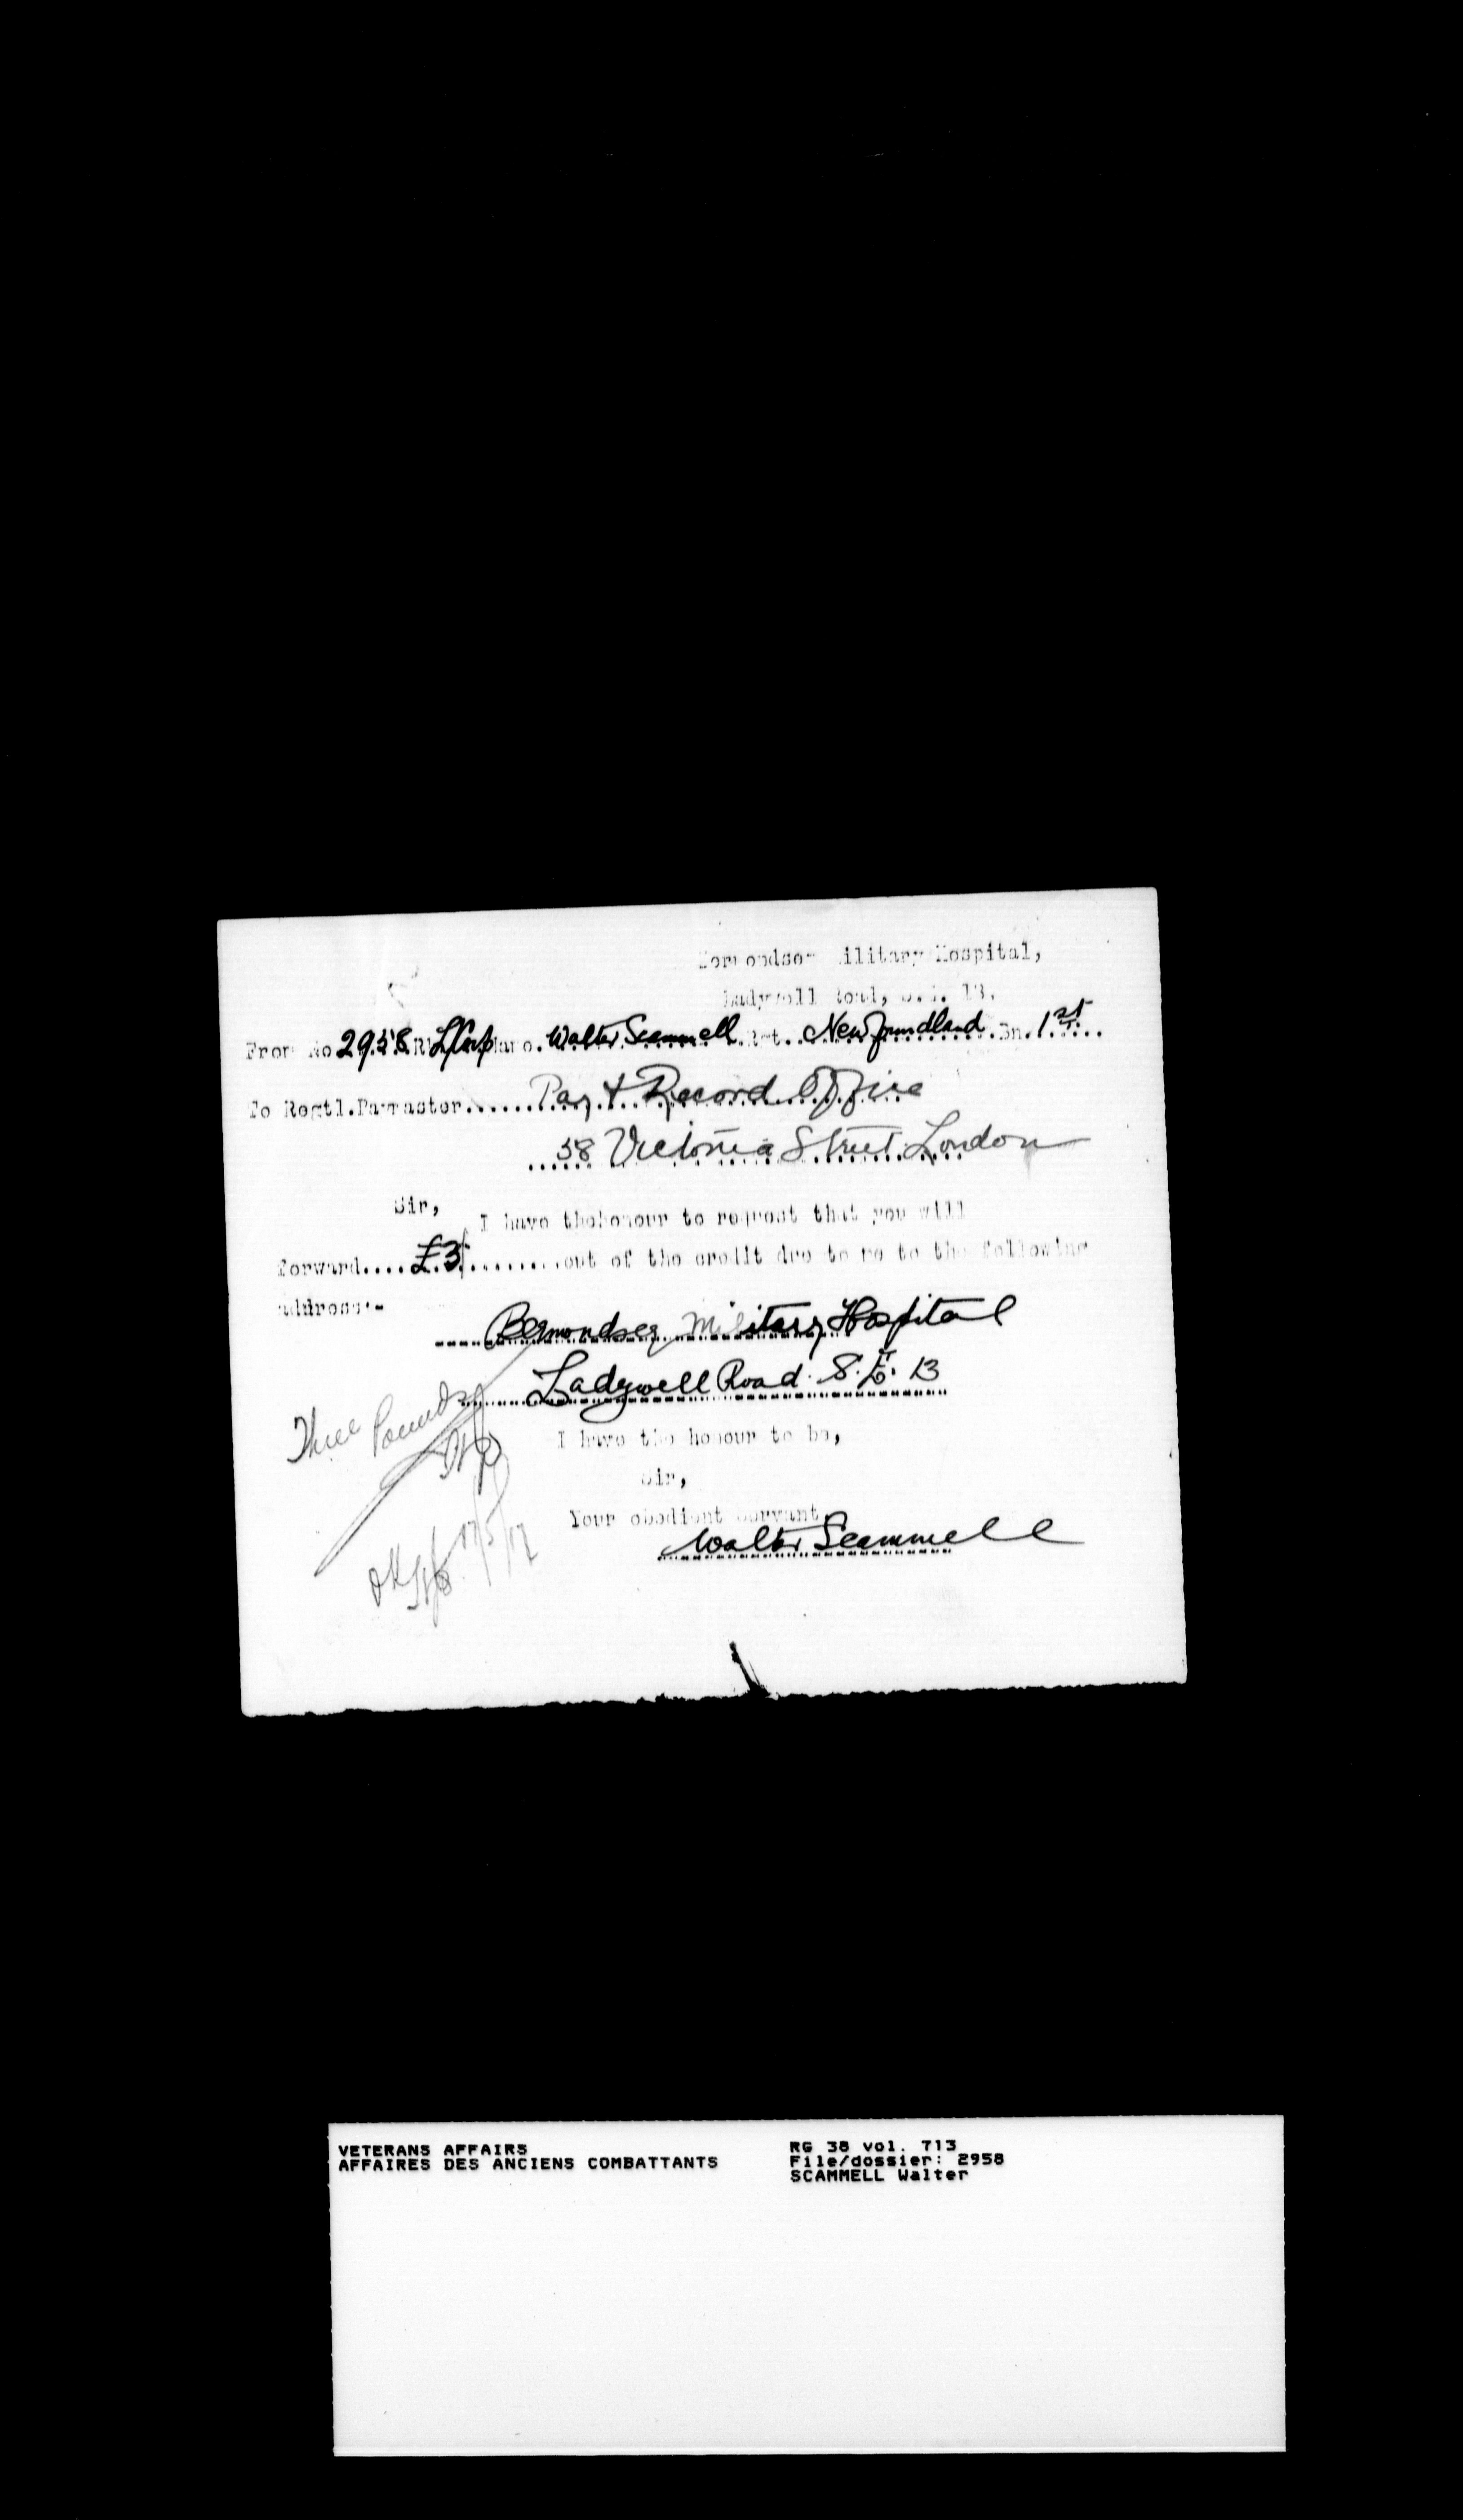 Bermondsey Military Hospital,
Ladywell Road, S.E. 13.
From No 2958 Rk L/Corp Name. Walter Scammell. Rgt. Newfoundland. Bn. 1st
To Regtl. Paymaster...... Pay & Record Office
58 Victoria Street London
Sir,
I have the honour to request that you will
forward.... £3/ .........out of the credit due to me to the following
address:-
Bermondsey Military Hospital
Ladywell Road. S. E. 13
Three Pounds
I have the honour to be,
Sir,
Your obedient servant,
Walter Scammell
OK 17/5/17
VETERANS AFFAIRS
AFFAIRES DES ANCIENS COMBATTANTS
RG 38 vol. 713
File/dossier: 2958
SCAMMELL Walter